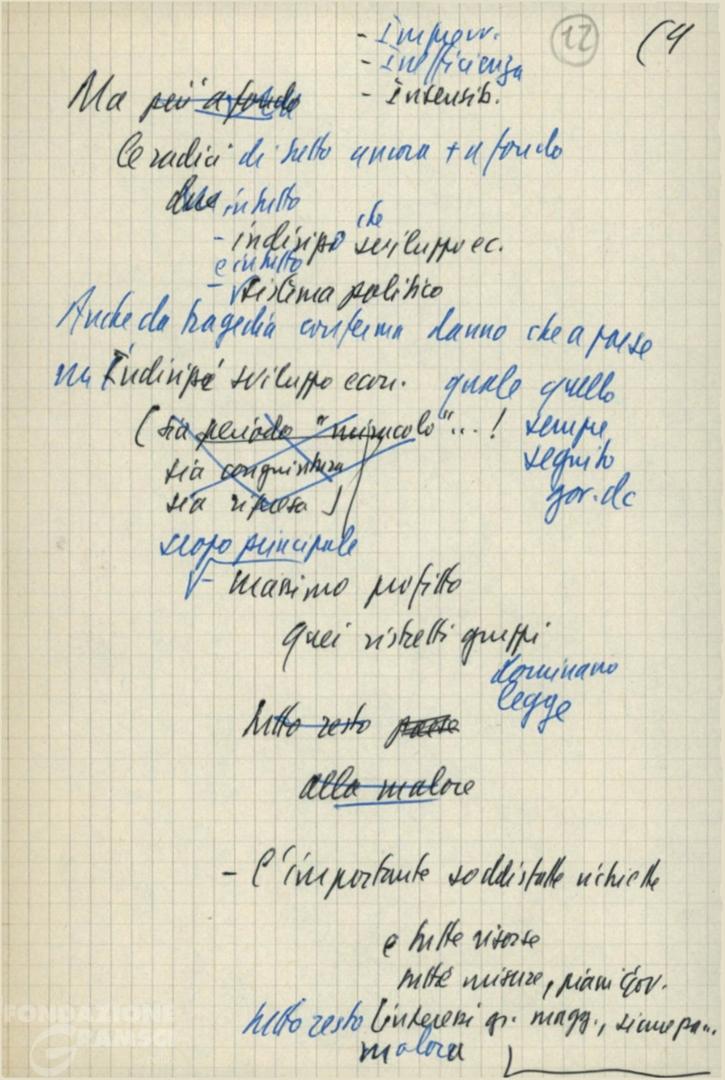 - Improvv.
12
(4
- Inefficienza
- Insensib.
Ma più a fondo
le radici di tutto ancora + a fondo
innanzitutto
- indirizzo che sviluppo ec.
e in tutto
- sistema politico
Anche da tragedia conferma danno che a paese
indirizzo sviluppo econ. quale quello
(sia periodo "miracolo"...! sempre
sia congiuntura seguito
sia ripresa) gov. dc
scopo principale
- massimo profitto
quei ristretti gruppi
dominano
legge
tutto resto paese
alla malora
- l'importante soddisfatte richieste
e tutte risorse
tutte misure, piani gov.
tutto resto (interessi gr. magg.,
malora
FONDAZIONE
GRAMSCI